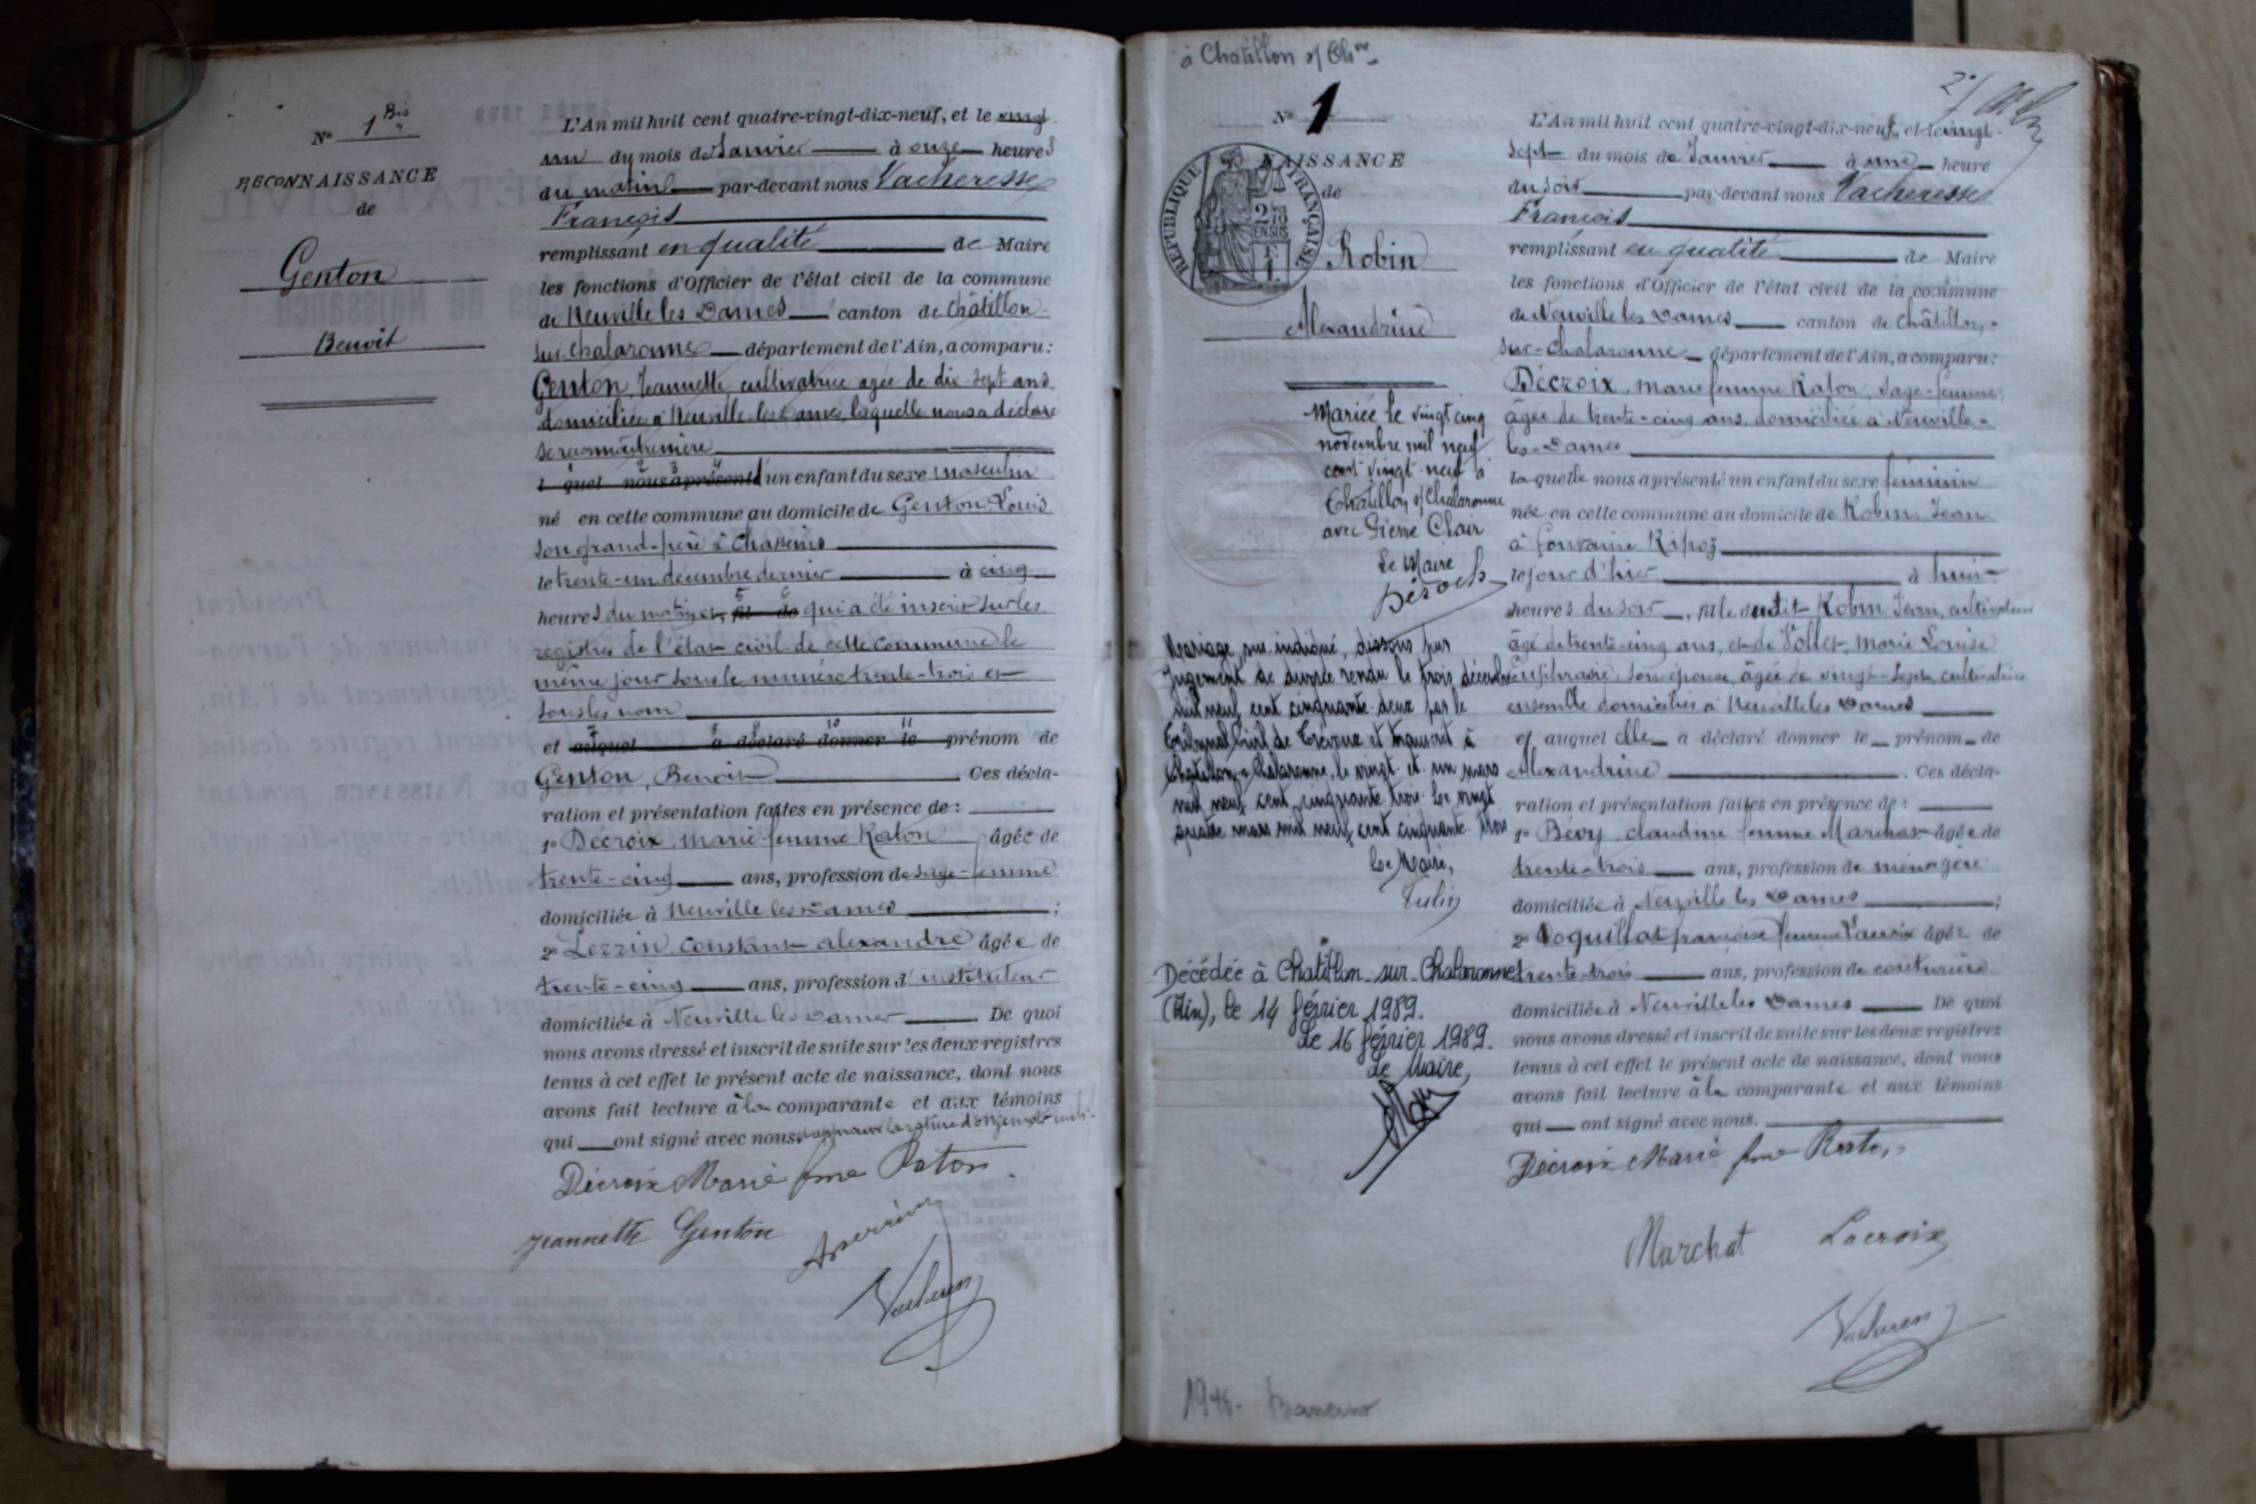 N° 1 Bis
RECONNAISSANCE
de
Genton
Benoit
L'An mil huit cent quatre-vingt-dix-neuf, et le vingt
un du mois de Janvier à onze heures
du matin par-devant nous Vacheresse
François
remplissant en qualité de Maire
les fonctions d'Officier de l'état civil de la commune
de Neuville les Dames canton de Châtillon
sur Chalaronne département de l'Ain, a comparu :
Genton, Jeannette, cultivatrice agée de dix-sept ans
domiciliée à Neuville-les-Dames, laquelle nous a déclaré
se reconnaître mère
l quel nous a présenté un enfant du sexe masculin
né en cette commune au domicile de Genton Louis
son grand-père à
le trente-un décembre dernier à cinq
heures du matin et, fil de qui a été inscrit sur les
registres de l'état civil de cette commune le
même jour sous le numéro trente-trois et
sous les nom
et auquel a déclaré donner le prénom de
Genton, Benoit Ces décla-
ration et présentation faites en présence de :
1° Décroix, Marie femme Raton âgée de
trente-cinq ans, profession de sage-femme
domiciliée à Neuville les Dames ;
2° Perrin Constant alexandre âgé e de
trente-cinq ans, profession d'instituteur
domicilié à Neuville les Dames De quoi
nous avons dressé et inscrit de suite sur les deux registres
tenus à cet effet le présent acte de naissance, dont nous
avons fait lecture à la comparante et aux témoins
qui ont signé avec nous. approuvé la rature d'onze mots nuls.
Décroix Marie fme Raton
Jeannette Genton
Vacheresse
à Chatillon s/ Chne
N° 1
NAISSANCE
de
RÉPUBLIQUE FRANÇAISE
2/10 EN SUS
1 F.
Robin
Alexandrine
Mariée le vingt cinq
novembre mil neuf
cent vingt-neuf à
Châtillon s/Chalaronne
avec Pierre Clair
Le Maire
Mariage sus indiqué, dissous par
Jugement de divorce rendu le trois décembre
mil neuf cent cinquante-deux par le
Tribunal Civil de Trévoux et transcrit à
Châtillon-s-Chalaronne, le vingt et un mars
mil neuf cent cinquante trois. Le vingt
quatre mars mil neuf cent cinquante trois
Le Maire,
Décédée à Chatillon-sur-Chalaronne
(Ain), le 14 février 1989.
Le 16 février 1989.
Le Maire,
1946.
2
L'An mil huit cent quatre-vingt-dix-neuf, et le vingt
sept du mois de Janvier à une heure
du soir par-devant nous Vacheresse
François
remplissant en qualité de Maire
les fonctions d'Officier de l'état civil de la commune
de Neuville les Dames canton de Châtillon
sur-Chalaronne département de l'Ain, a comparu :
Décroix, Marie femme Raton, sage-femme,
âgée de trente-cinq ans, domiciliée à Neuville-
les-Dames
laquelle nous a présenté un enfant du sexe féminin
née en cette commune au domicile de Robin, Jean
à fontaine Ripoz
le jour d'hier à huit
heures du soir, fille dudit Robin Jean, cultivateur
âgé de trente-cinq ans, et de Vollet, Marie Louise
Euphrasie, son épouse, âgée de vingt-sept, cultivatrice
ensemble domiciliés à Neuville les Dames
et auquel elle a déclaré donner le prénom de
Alexandrine. Ces décla-
ration et présentation faites en présence de :
1° Bévy, Claudine femme Marchat âgée de
trente-trois ans, profession de ménagère
domiciliée à Neuville les Dames ;
2° Loquillat françoise femme Lacroix âgée de
trente-trois ans, profession de couturière
domiciliée à Neuville les Dames De quoi
nous avons dressé et inscrit de suite sur les deux registres
tenus à cet effet le présent acte de naissance, dont nous
avons fait lecture à la comparante et aux témoins
qui ont signé avec nous.
Décroix Marie fme Raton
Marchat Lacroix
Vacheresse